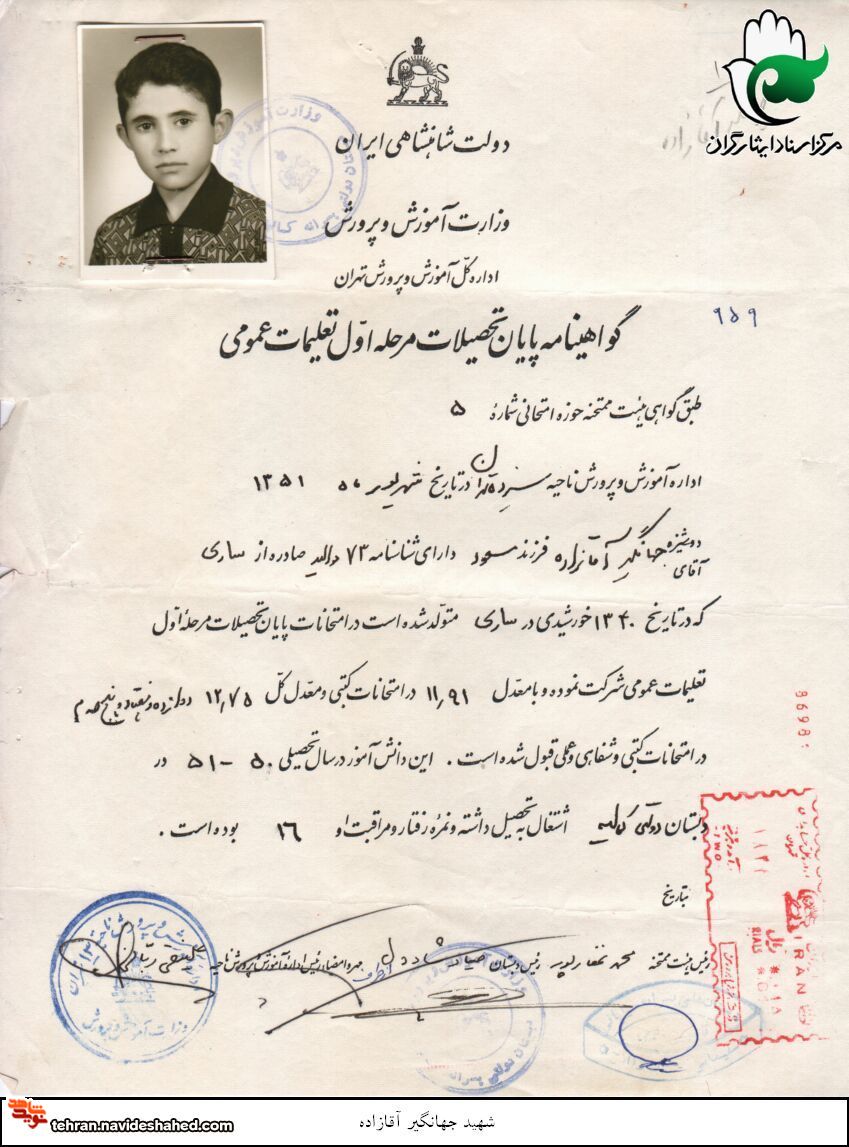 مرکز اسناد ایثارگران
دولت شاهنشاهی ایران
وزارت آموزش و پرورش
اداره کل آموزش و پرورش تهران
۹۵۹
گواهینامه پایان تحصیلات مرحله اوّل تعلیمات عمومی
طبق گواهی هیئت ممتحنه حوزه امتحانی شمارهٔ ۵
اداره آموزش و پرورش ناحیه سیزده تهران در تاریخ شهریور ۱۳۵۱
دوشیزه
آقای جهانگیر آقازاده فرزند مسعود دارای شناسنامه ۷۳ صادره از ساری
که در تاریخ ۱۳۴۰ خورشیدی در ساری متولد شده است در امتحانات پایان تحصیلات مرحلهٔ اوّل
تعلیمات عمومی شرکت نموده و با معدل ۱۱٫۹۱ در امتحانات کتبی و معدل کلّ ۱۲٫۷۵ دوازده و هفتاد و پنج صدم
در امتحانات کتبی و شفاهی و عملی قبول شده است . این دانش آموز در سال تحصیلی ۵۰ - ۵۱ در
دبستان دولتی اشتغال به تحصیل داشته و نمره رفتار و مراقبت او ۱۶ بوده است .
بتاریخ
رئیس هیئت ممتحنه محمد رئیس دبستان مهر و امضاء رئیس اداره آموزش و پرورش ناحیه
وزارت آموزش و پرورش
IRAN
RIALS
ریال
نوید شاهد
tehran.navideshahed.com
شهید جهانگیر آقازاده